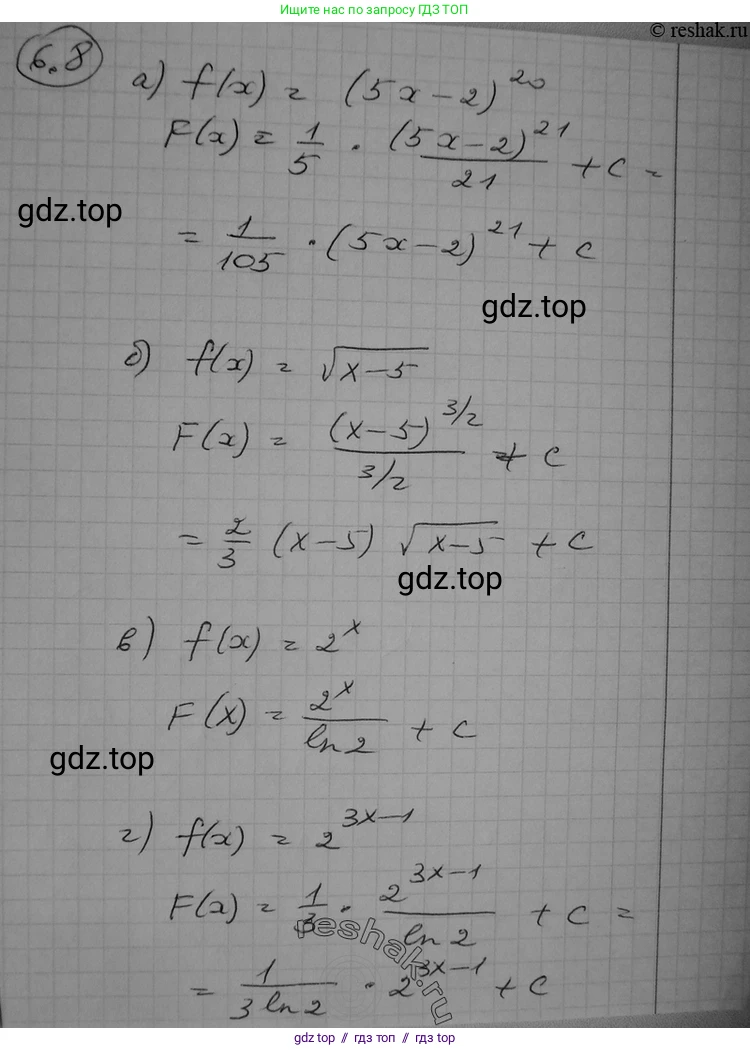 Ищите нас по запросу ГДЗ ТОП
© reshak.ru
6.8
а) f(x) = (5x-2)^20
F(x) = 1/5 · (5x-2)^21/21 + C =
gdz.top
= 1/105 · (5x-2)^21 + C
gdz.top
б) f(x) = √(x-5)
F(x) = (x-5)^(3/2)/(3/2) + C
= 2/3 (x-5) √(x-5) + C
gdz.top
в) f(x) = 2^x
F(x) = 2^x/ln2 + C
gdz.top
г) f(x) = 2^(3x-1)
F(x) = 1/3 · 2^(3x-1)/ln2 + C =
reshak.ru
= 1/(3 ln2) · 2^(3x-1) + C
gdz.top // гдз топ // gdz.top